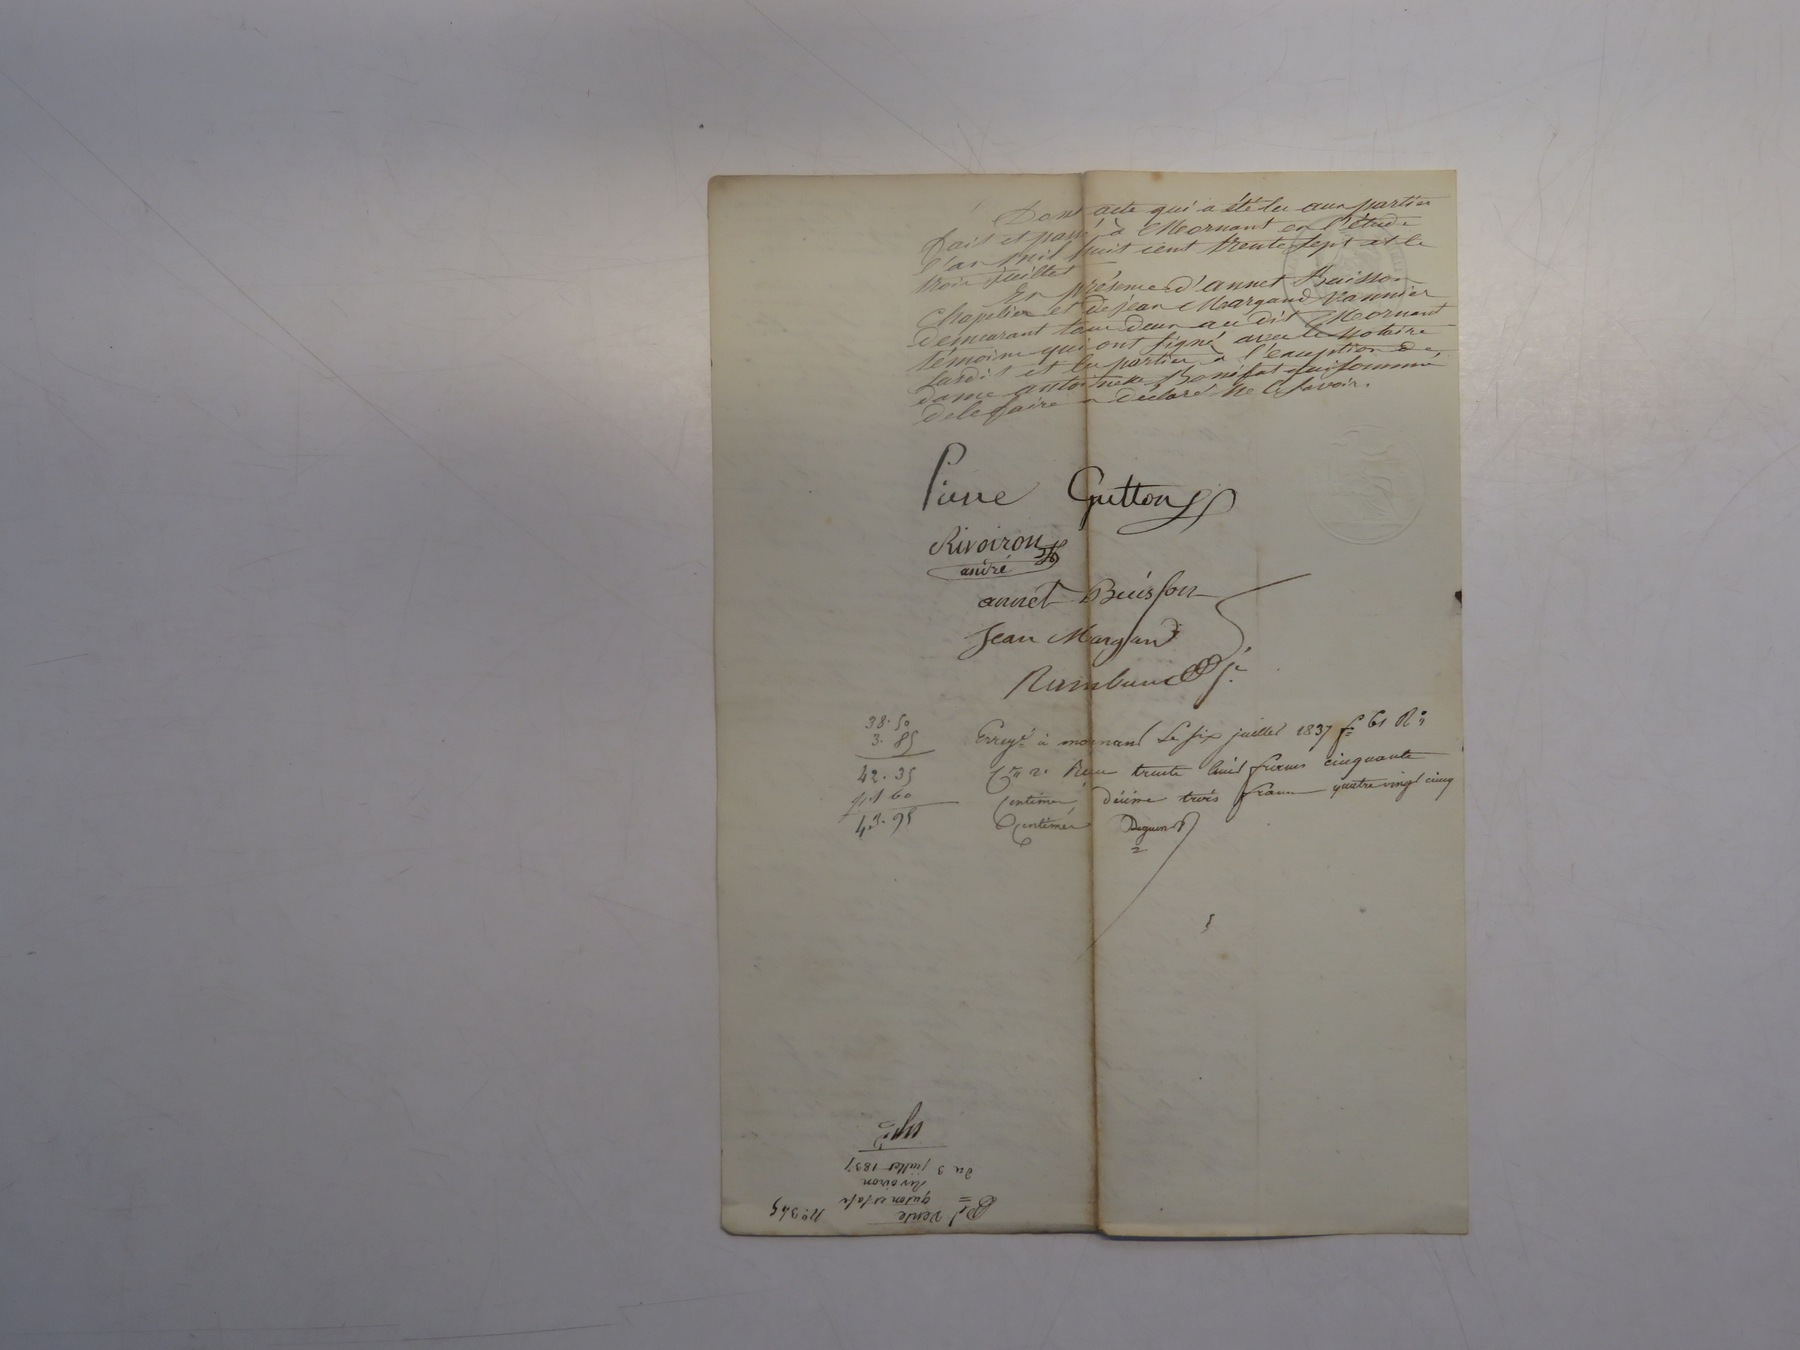 Dont acte qui a été lu aux parties
fait et passé à Mornant en l'étude
l'an mil huit cent trente sept et le
trois juillet
En présence d'annet Buisson
Chapelier et de jean Margand vannier
demeurant tous deux au dit Mornant
témoins qui ont signé avec le Notaire
susdit et les parties à l'exception de
dame antoinette qui sommé
de le faire a déclaré ne le savoir.
Pierre Guttons
Rivoiron
andré
annet Buisson
Jean Margand
38. 50
3. 85
42. 35
60
47. 95
Enregé à mornant Le six juillet 1837 fo 61 Ro
Cse 2. Reçu trente huit francs cinquante
Centimes décime trois francs quatre vingt cinq
Centimes
No. 345
vente
Rivoiron
du 3 juillet 1837